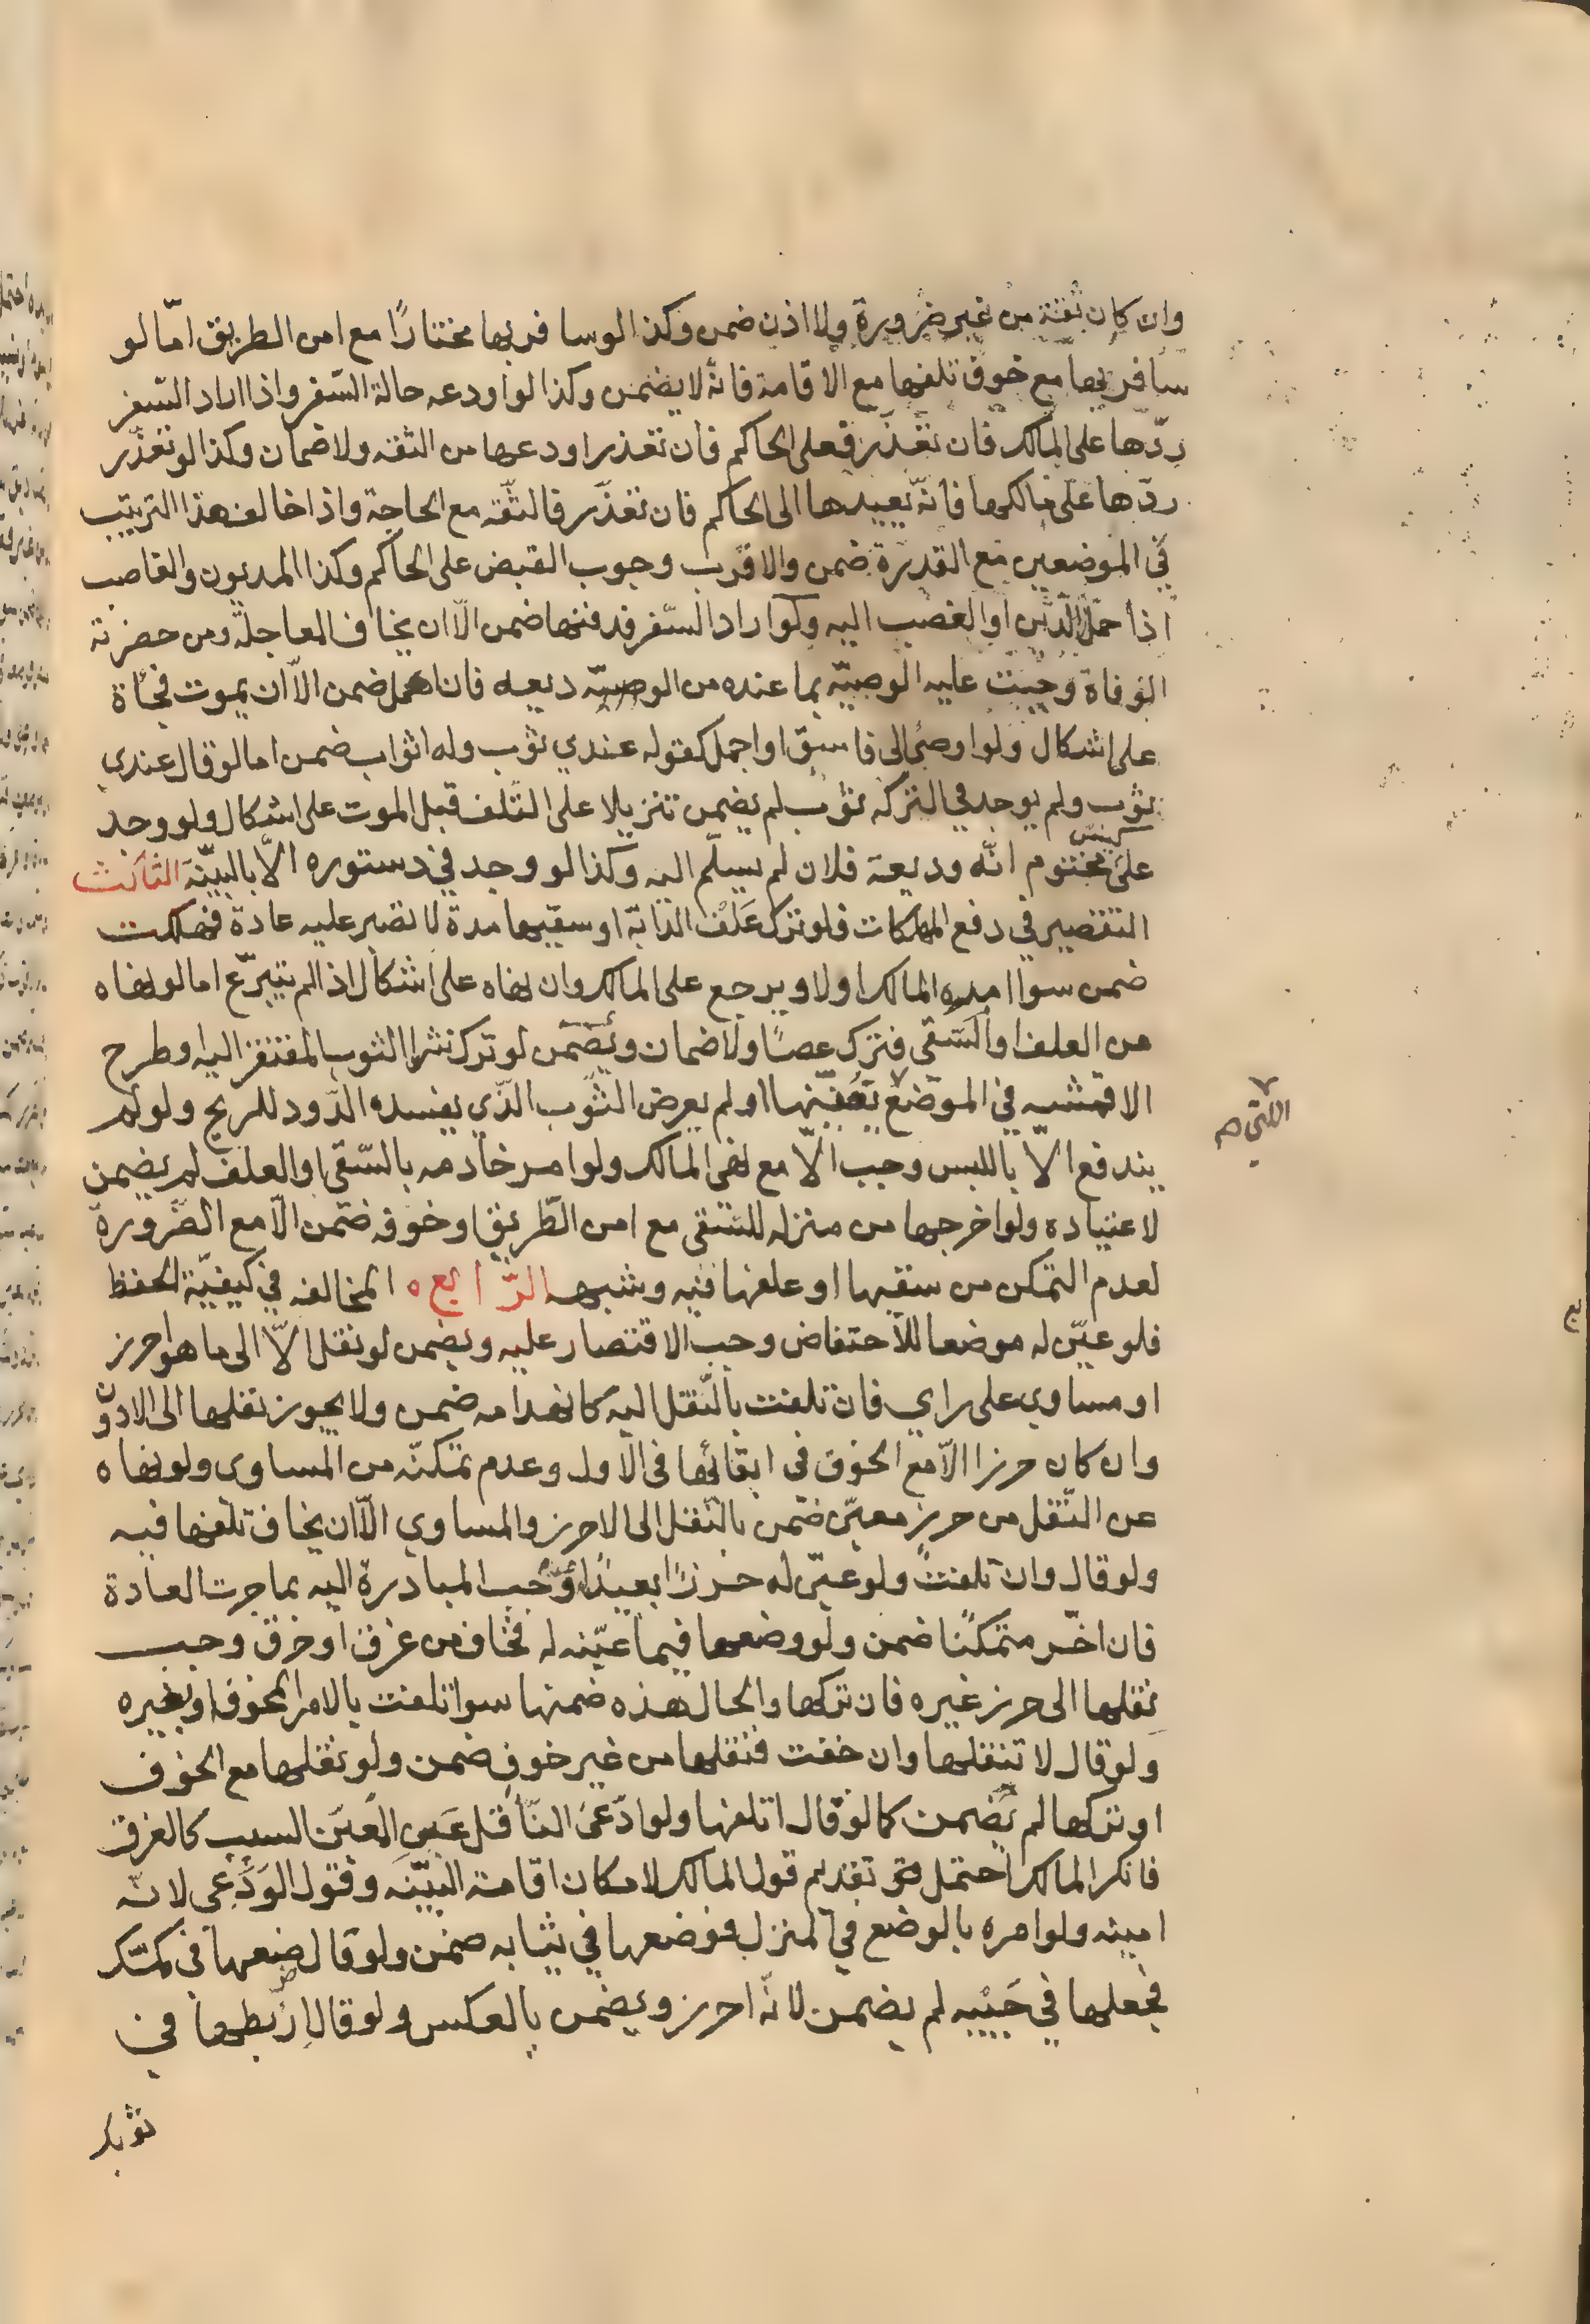 وان كان ثقة من غير ضرورة ولا اذن ضمن وكذا لو سافر بها مختارًا مع امن الطريق امّا لو
سافر بها مع خوف تلفها مع الاقامة فانّه لا يضمن وكذا لو اودعه حالة السّفر واذا اراد السّفر
ردّها على المالك فان تعذّر فعلى الحاكم فان تعذر اودعها من الثقه ولا ضمان وكذا لو تعذّر
ردّها على مالكها فانّه يعيدها الى الحاكم فان تعذّر فالثّقه مع الحاجة واذا خالف هذا الترتيب
في الموضعين مع القدرة ضمن والاقرب وجوب القبض على الحاكم وكذا المديون والغاصب
اذا حمل الدّين او الغصب اليه ولو اراد السّفر فدفنها ضمن الّا ان يخاف المعاجلة ومن حضرته
الوفاة وجبت عليه الوصيّة بما عنده من الوصيّه ديعه فان اهمل ضمن الّا ان يموت فجأة
على اشكال ولو اوصى الى فاسق او اجمل كقوله عندي ثوب وله اثواب ضمن اما لو قال عندي
ثوب ولم يوجد في التركه ثوب لم يضمن تنزيلا على التلف قبل الموت على اشكال ولو وجد
كيس
على مختوم انّه وديعة فلان لم يسلّم اليه وكذا لو وجد في دستوره الّا بالبيّنة الثالث
التقصير في دفع المهلكات فلو ترك علف الدّابة او سقيها مدة لا تصبر عليه عادة فهلكت
ضمن سوا امره المالك اولا ويرجع على المالك وان نهاه على اشكال اذا لم يتبرّع اما لو نهاه
من العلف او السّقي فترك عصا ولا ضمان ويضمن لو ترك نشر الثوب المفتقر اليه وطرح
الاقمشه في الموضع تعفنها او لم يعرض الثوب الذّي يفسده الدّود للريح ولو لم
اللتي صه
يندفع الّا باللبس وجب الّا مع نهى المالك ولو امر خادمه بالسّقي او العلف لم يضمن
لاعتياده ولو اخرجها من منزله للسّقى مع امن الطّريق او خوفه ضمن الّا مع الضّرورة
لعدم التمكن من سقيها او علفها فيه وشبهه الرّابع المخالفه في كيفيّة الحفظ
فلو عيّن له موضعا للاحتفاض وجب الاقتصار عليه ويضمن لو نقل الّا الى ما هو احرز
او مساوي على راي فان تلفت بالنّقل اليه كانهدامه ضمن ولا يجوز نقلها الى الادون
وان كان حرزا الّا مع الخوف فى ابقائها فى الاول وعدم تمكنّه من المساوى ولو نهاه
عن النّقل من حرز معيّن ضمن بالنّقل الى الاحرز والمساوي الّا ان يخاف تلفها فيه
ولو قال وان تلفت ولو عيّن له حرزًا بعيدًا وجب المبادرة اليه بما جرت العادة
فان اخّر متمكنًا ضمن ولو وضعها فيما عيّنه له فخاف من غرق او حرق وجب
نقلها الى حرز غيره فان تركها والحال هذه ضمنها سوا تلفت بالامر المخوف او بغيره
ولو قال لا تنقلها وان خفت فنقلها من غير خوف ضمن ولو نقلها مع الخوف
او تركها لم يضمن كما لو قال اتلفها ولو ادّعى النّاقل عن المعين السبب كالغرق
فانكر المالك احتمل تقديم قول المالك لامكان اقامة البيّنه وقول الودعى لانّه
امينه ولو امره بالوضع في المنزل فوضعها في ثيابه ضمن ولو قال ضعها في كمّك
فجعلها في جيبه لم يضمن لانّه احرز ويضمن بالعكس ولو قال اربطها في
ثوبك